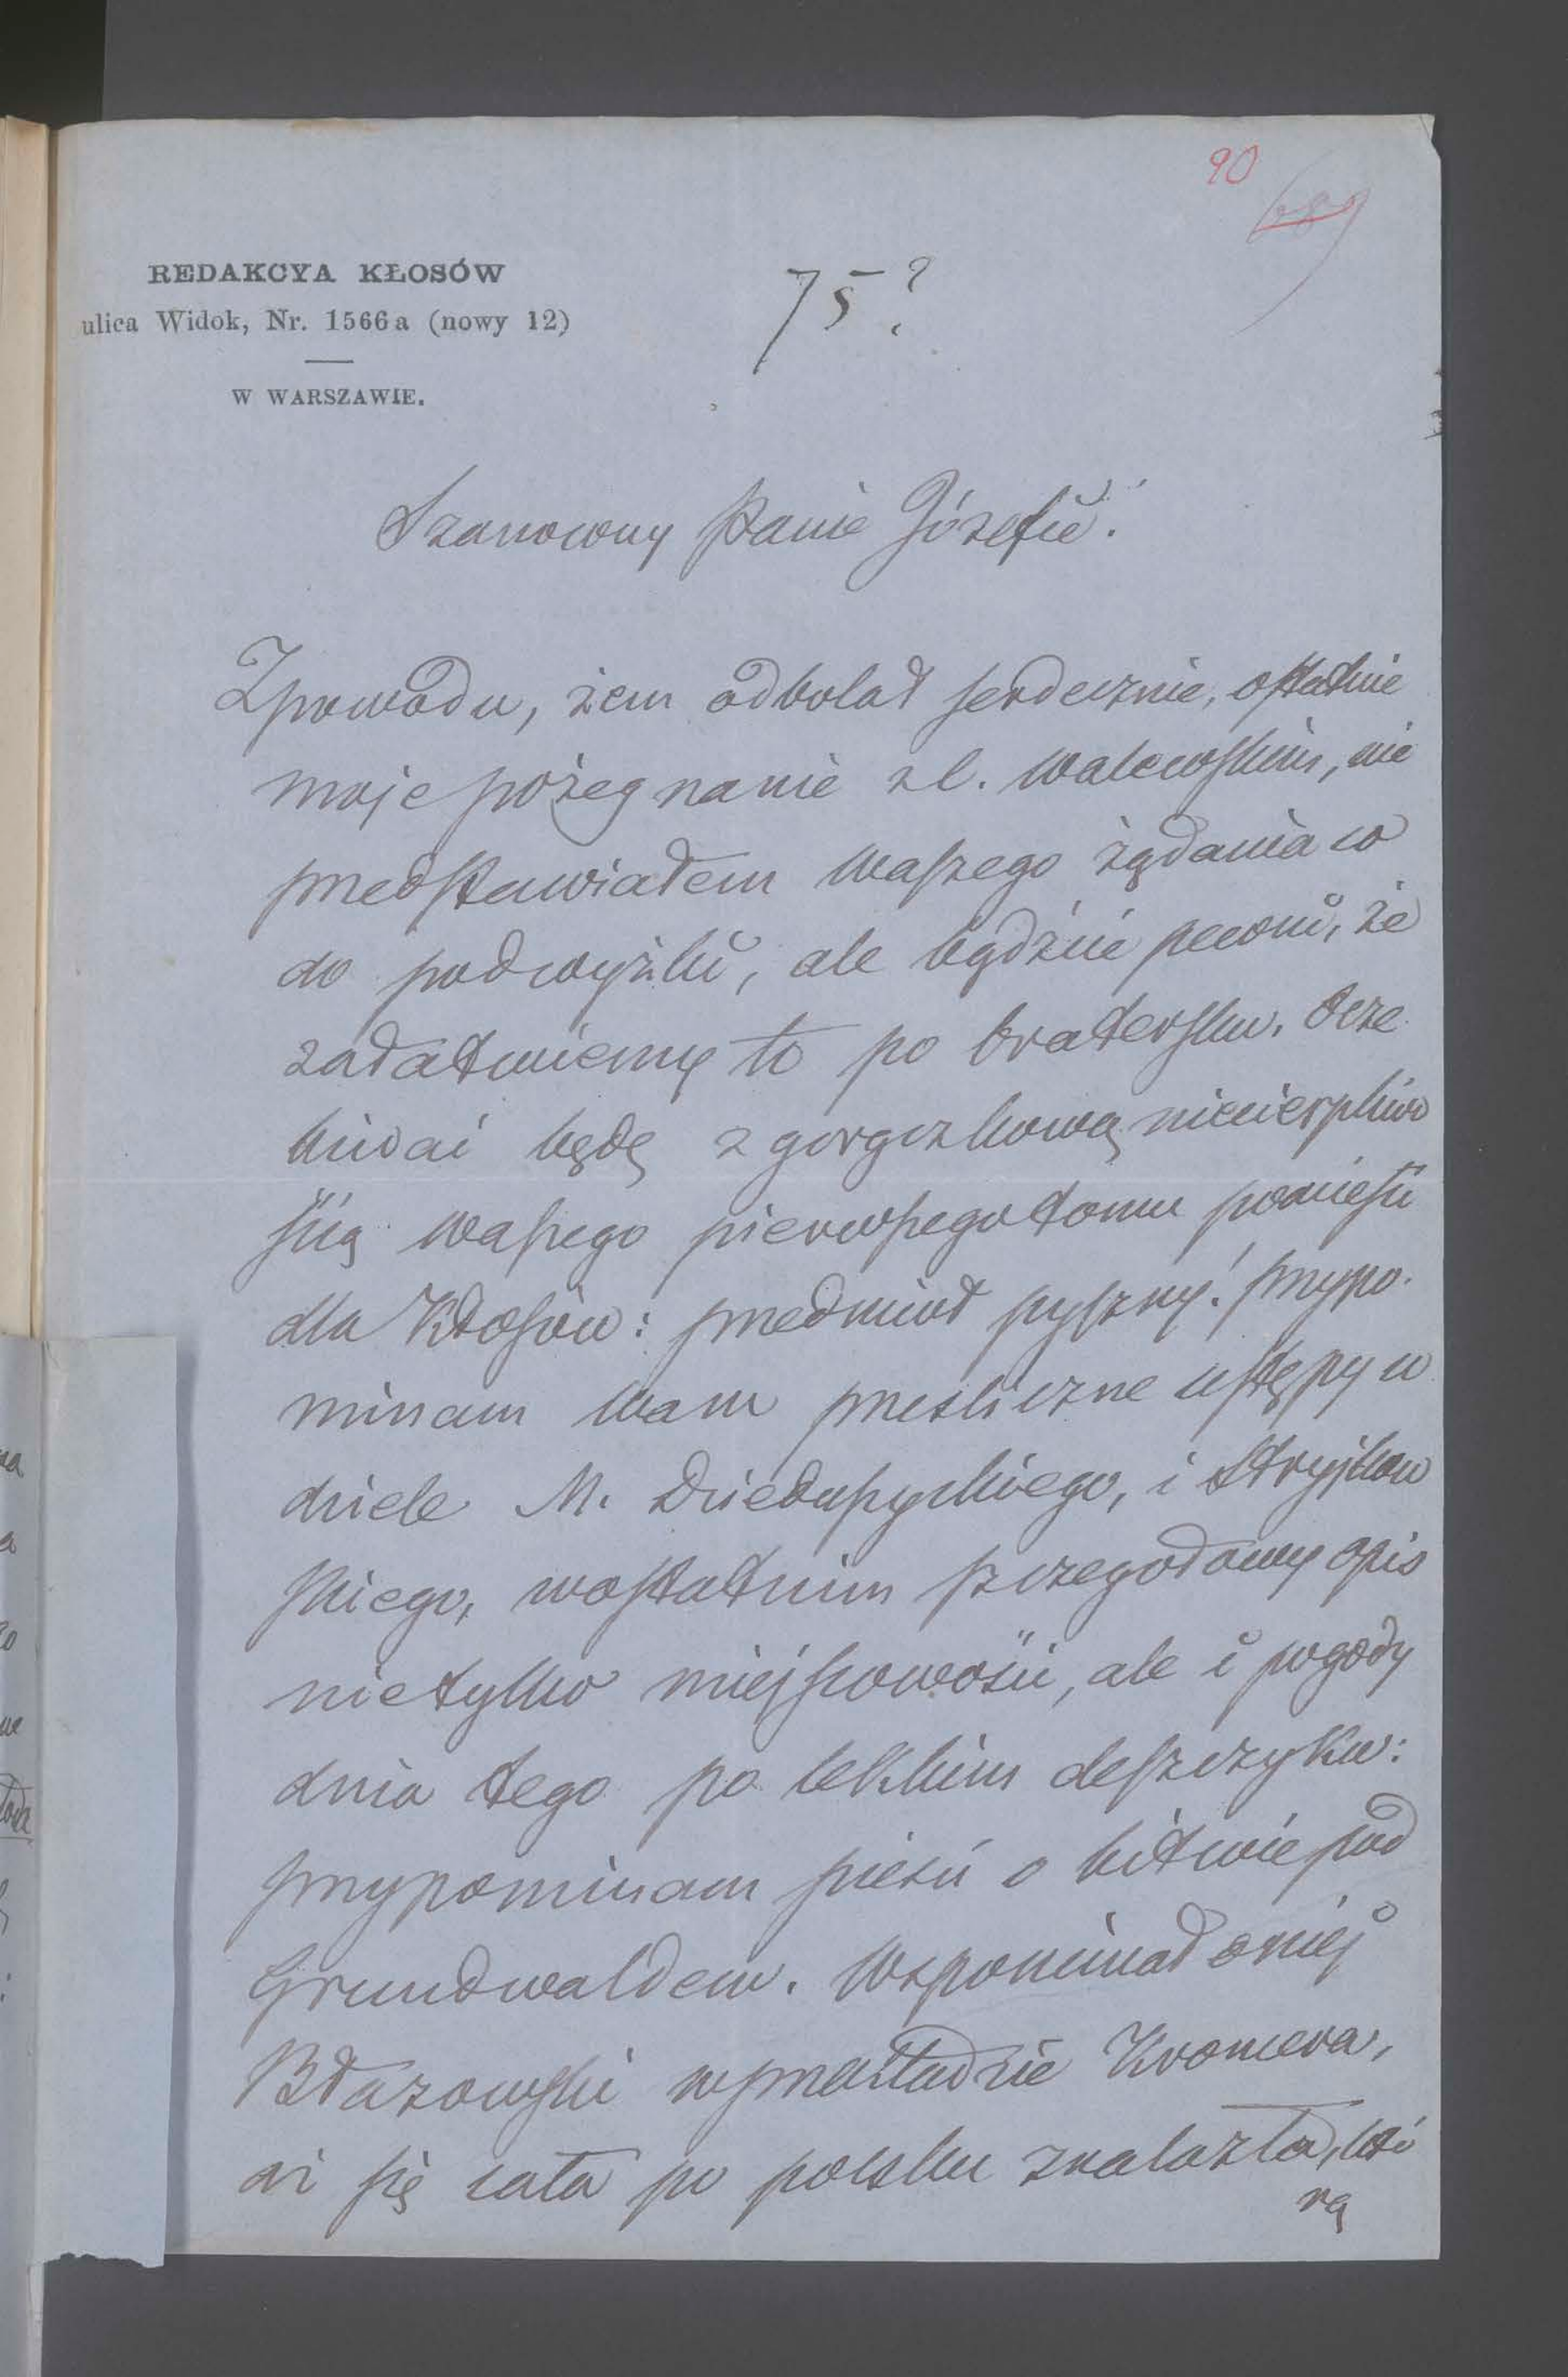 90
689
REDAKCYA KŁOSÓW
ulica Widok, Nr. 1566 a (nowy 12)
W WARSZAWIE.
75?
Szanowny Panie Józefie!
Zpowodu, żem odbolał serdecznie, ostatnie
moje pożegnanie z L. Walewskim, nie
przedstawiałem waszego żądania co
do podwyżki, ale bądźcie pewni, że
załatwiemy to po bratersku. Ocze
kiwać będę z gorączkową niecierpliwo
ścią waszego pierwszego tomu powieści
dla Kłosów: przedmiot pyszny! Przypo-
minam wam prześliczne ustępy w
dziele M. Dzieduszyckiego, i Stryjkow
skiego, wostatnim szczegołowy opis
nietylko miejscowości, ale i pogody
dnia tego po lekkim deszczyku:
przypominam pieśń o bitwie pod
Grundwaldem. Wspominał o niej
Błazowski w przekładzie Kromera,
aż się cała po polsku znalazła, któ
rą